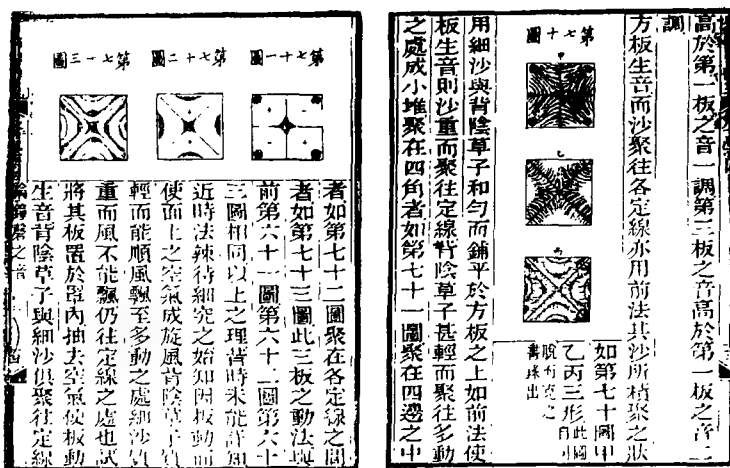 高於第一板之音一調第三板之音高於第一板之音二
調
方板生音而沙聚往各定線亦用前法其沙所積聚之狀
第七十圖
甲
乙
丙
如第七十圖甲
乙丙三形此圖自
用細沙與背陰草子和勻而鋪平於方板之上如前法使
板生音則沙重而聚往定線背陰草子甚輕而聚往多動
之處成小堆聚在四角者如第七十一圖聚在四邊之中
第七十一圖
第七十二圖
第七十三圖
者如第七十二圖聚在各定線之間
者如第七十三圖此三板之動法與
前第六十一圖第六十二圖第六十
三圖相同以上之理昔時未能詳知
近時法辣待細究之始知因板動而
使面上之空氣成旋風背陰草子質
輕而能順風飄至多動之處細沙質
重而風不能飄仍往定線之處也試
將其板置於罩內抽去空氣使板動
生音背陰草子與細沙俱聚往定線